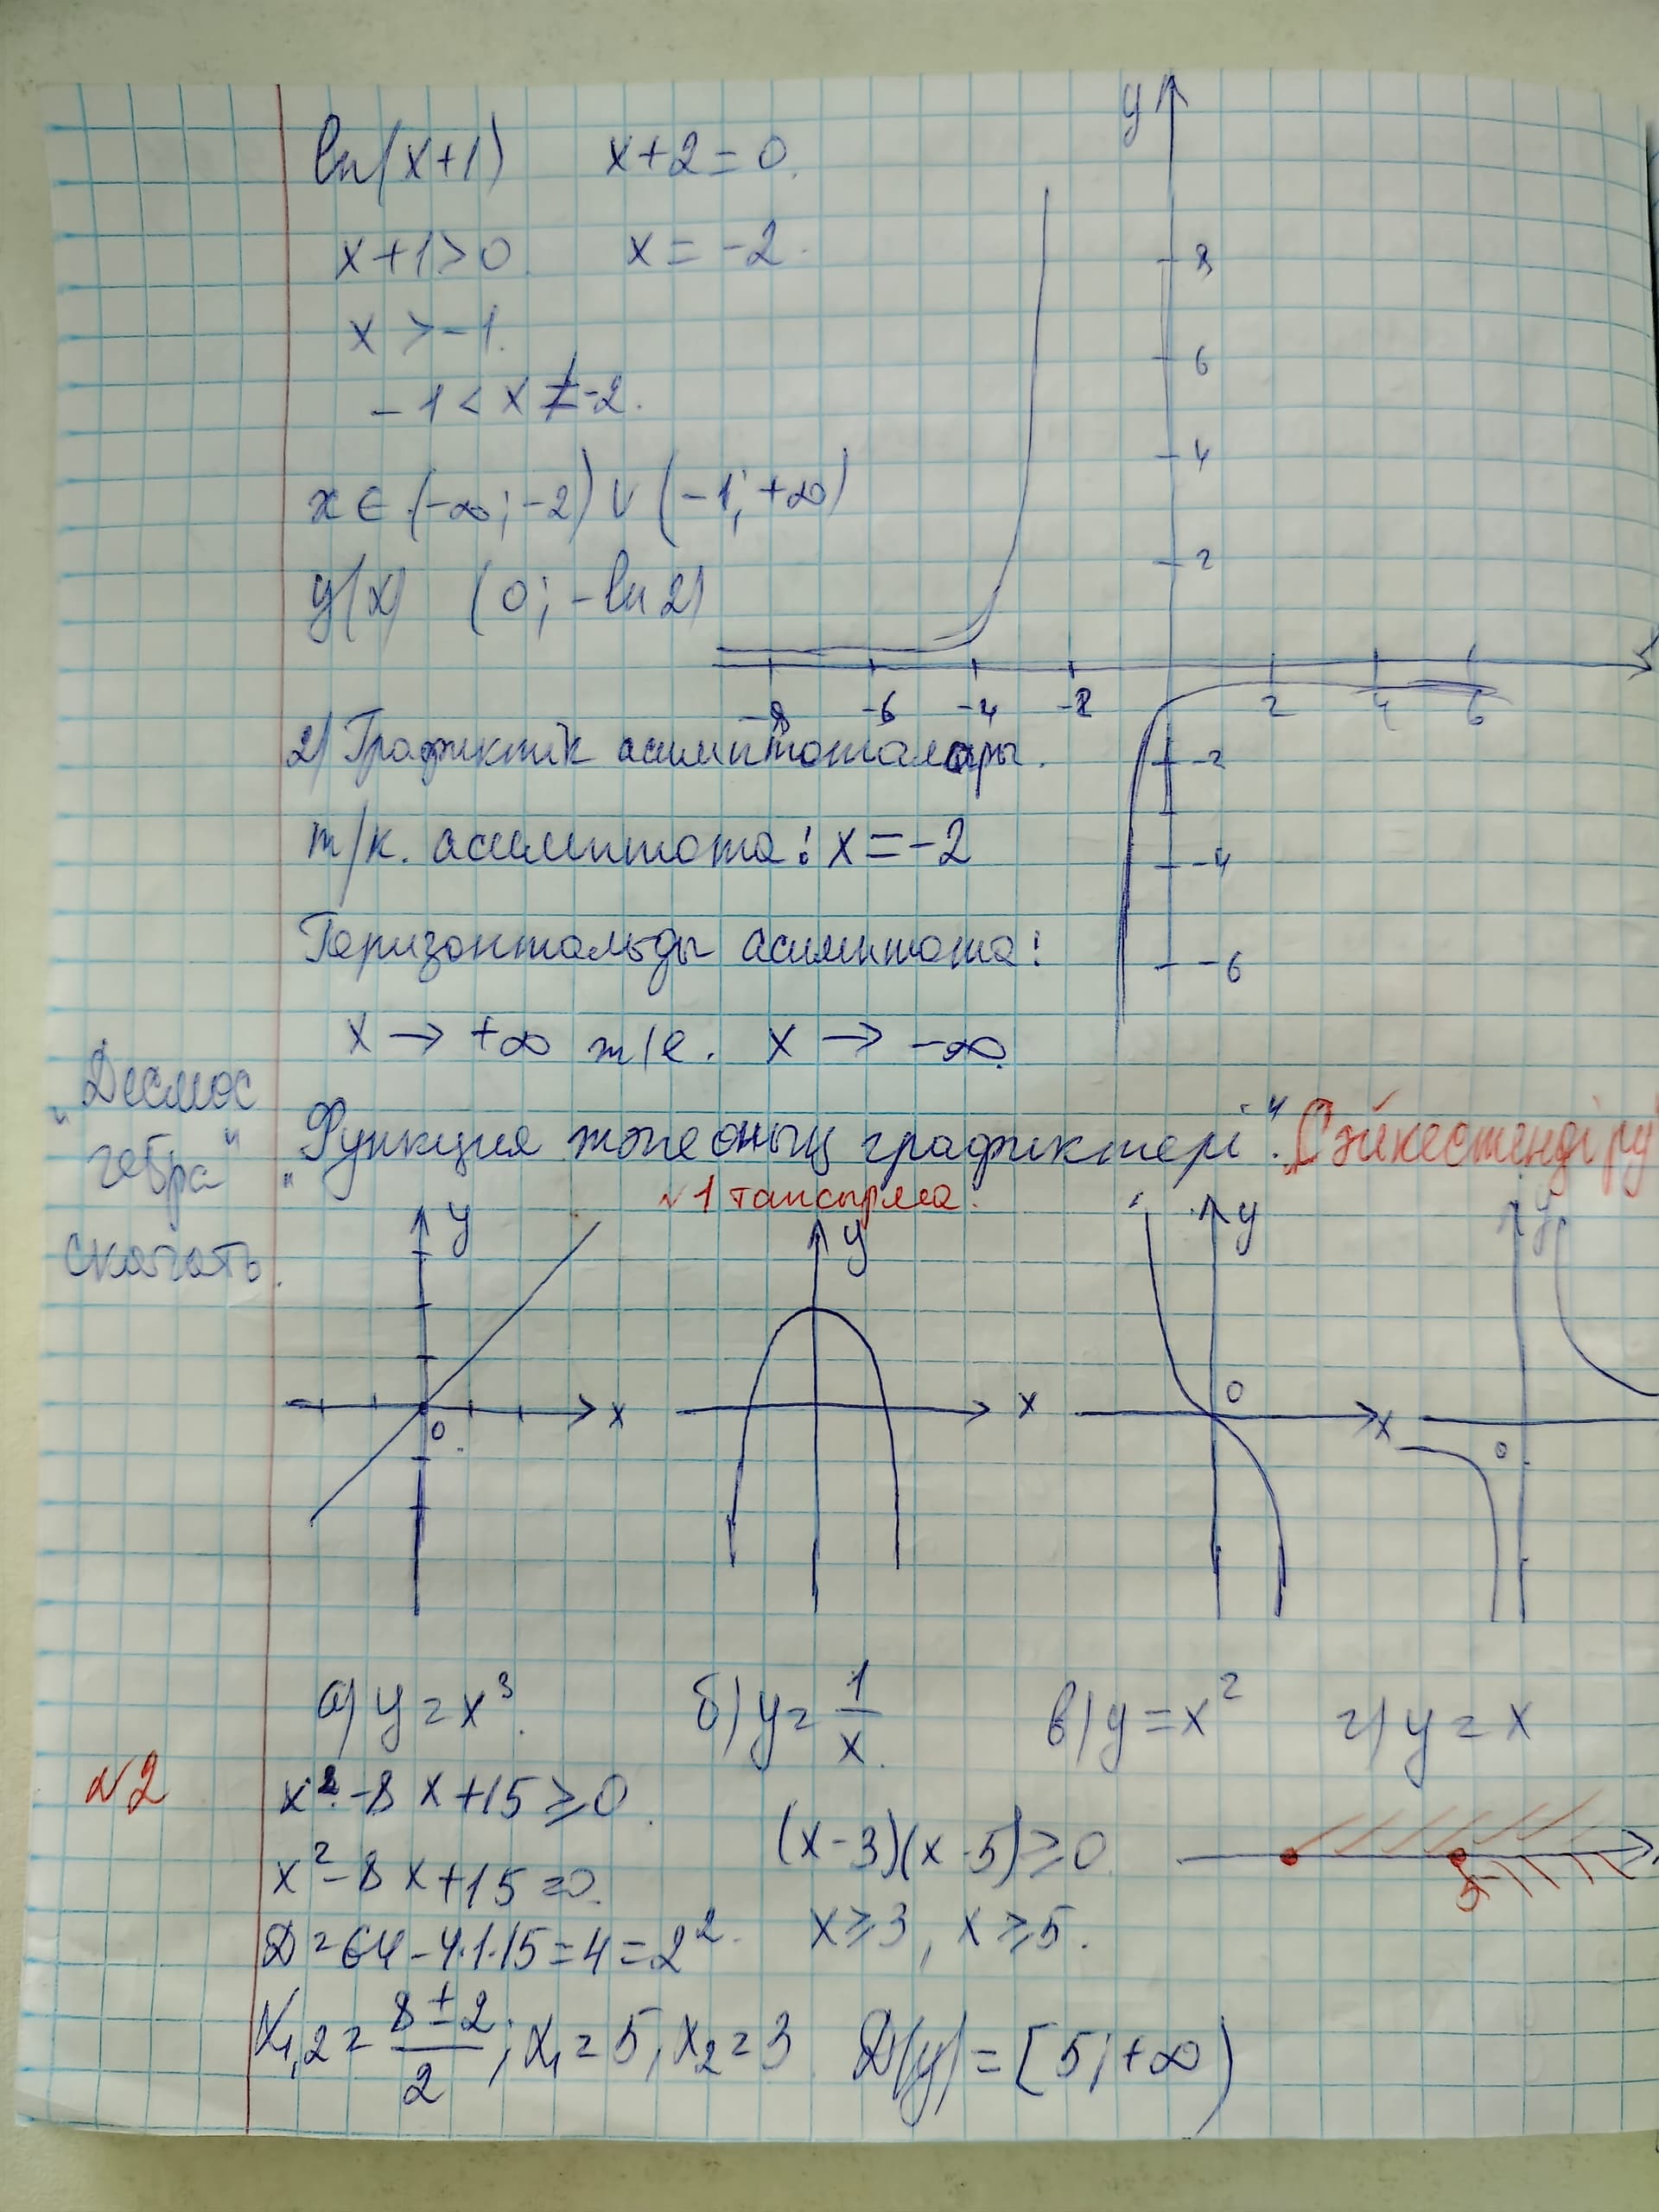 ln(x+1) x+2=0.
x+1>0. x=-2.
x>-1.
-1<x≠-2.
x∈(-∞;-2)∨(-1;+∞)
y(x) (0;-ln2)
y
8
6
4
2
-8 -6 -4 -2 2 4 6
-2
-4
-6
2) Графиктік асимптоталары.
т/к. асимптота: x=-2
Горизонтальды асимптота:
x → +∞ ж/е. x → -∞.
"Десмос
гебра"
скачать.
"Функция және оның графиктері". Сәйкестендіру
№1 тапсырма.
y y y y
0 x x 0 x 0
а) y=x³. б) y=1/x. в) y=x² г) y=x
№2
x²-8x+15≥0.
x²-8x+15=0.
D=64-4·1·15=4=2².
x₁,₂=(8±2)/2; x₁=5, x₂=3
(x-3)(x-5)≥0.
5
x≥3, x≥5.
D(y)=[5;+∞)